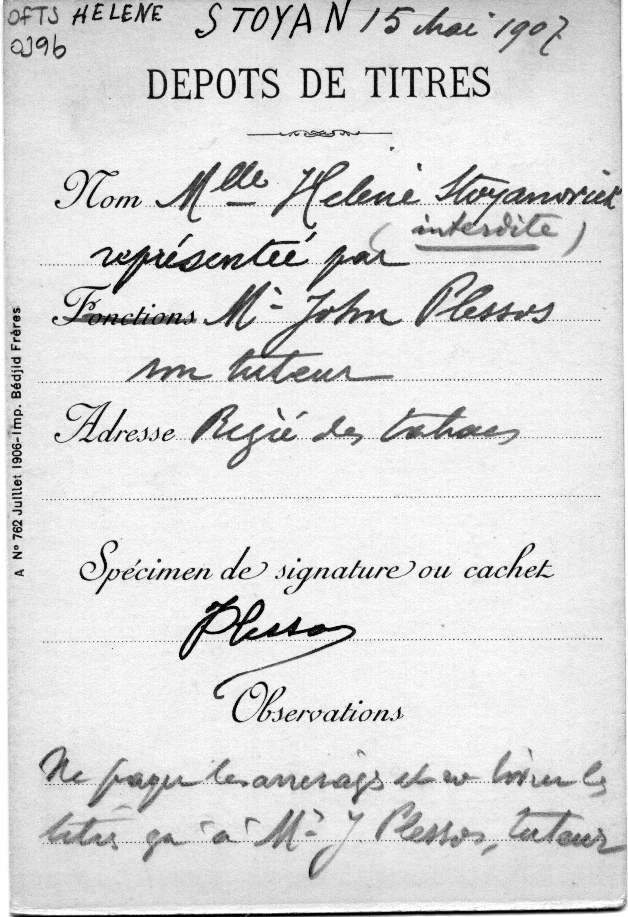 OFTS HELENE STOYAN 15 Mai 1907
0196
DEPOTS DE TITRES
Nom Mlle Helene Stoyanovich
(interdite)
représentée par
Fonctions Mr John Plessos
son tuteur
Adresse Régie des tabacs
Spécimen de signature ou cachet
Plessos
Observations
Ne payer les arrerages et ne livrer les
titres qu'à Mr J. Plessos, tuteur
A No 762 Juillet 1906-Imp. Bédjid Frères